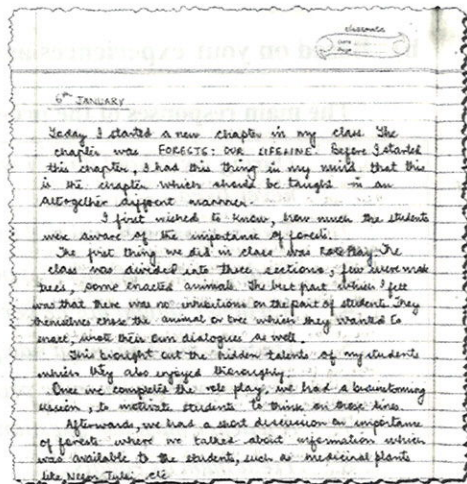 classmate
Date
Page
6th JANUARY
Today I started a new chapter in my class. The
chapter was FORESTS: OUR LIFELINE. Before I started
this chapter, I had this thing in my mind that this
is the chapter which should be taught in an
altogether different manner.
I first wished to know, how much the students
were aware of the importance of forests.
The first thing we did in class was Role Play. The
class was divided into three sections; few were made
trees, some enacted animals. The best part which I felt
was that there was no inhibitions on the part of students. They
themselves chose the animal or tree which they wanted to
enact, wrote their own dialogues as well.
This brought out the hidden talents of my students
which they also enjoyed thoroughly.
Once we completed the role play, we had a brainstorming
session, to motivate students to think on those lines.
Afterwards, we had a short discussion on importance
of forests where we talked about information which
was available to the students, such as medicinal plants
like Neem, Tulsi, etc